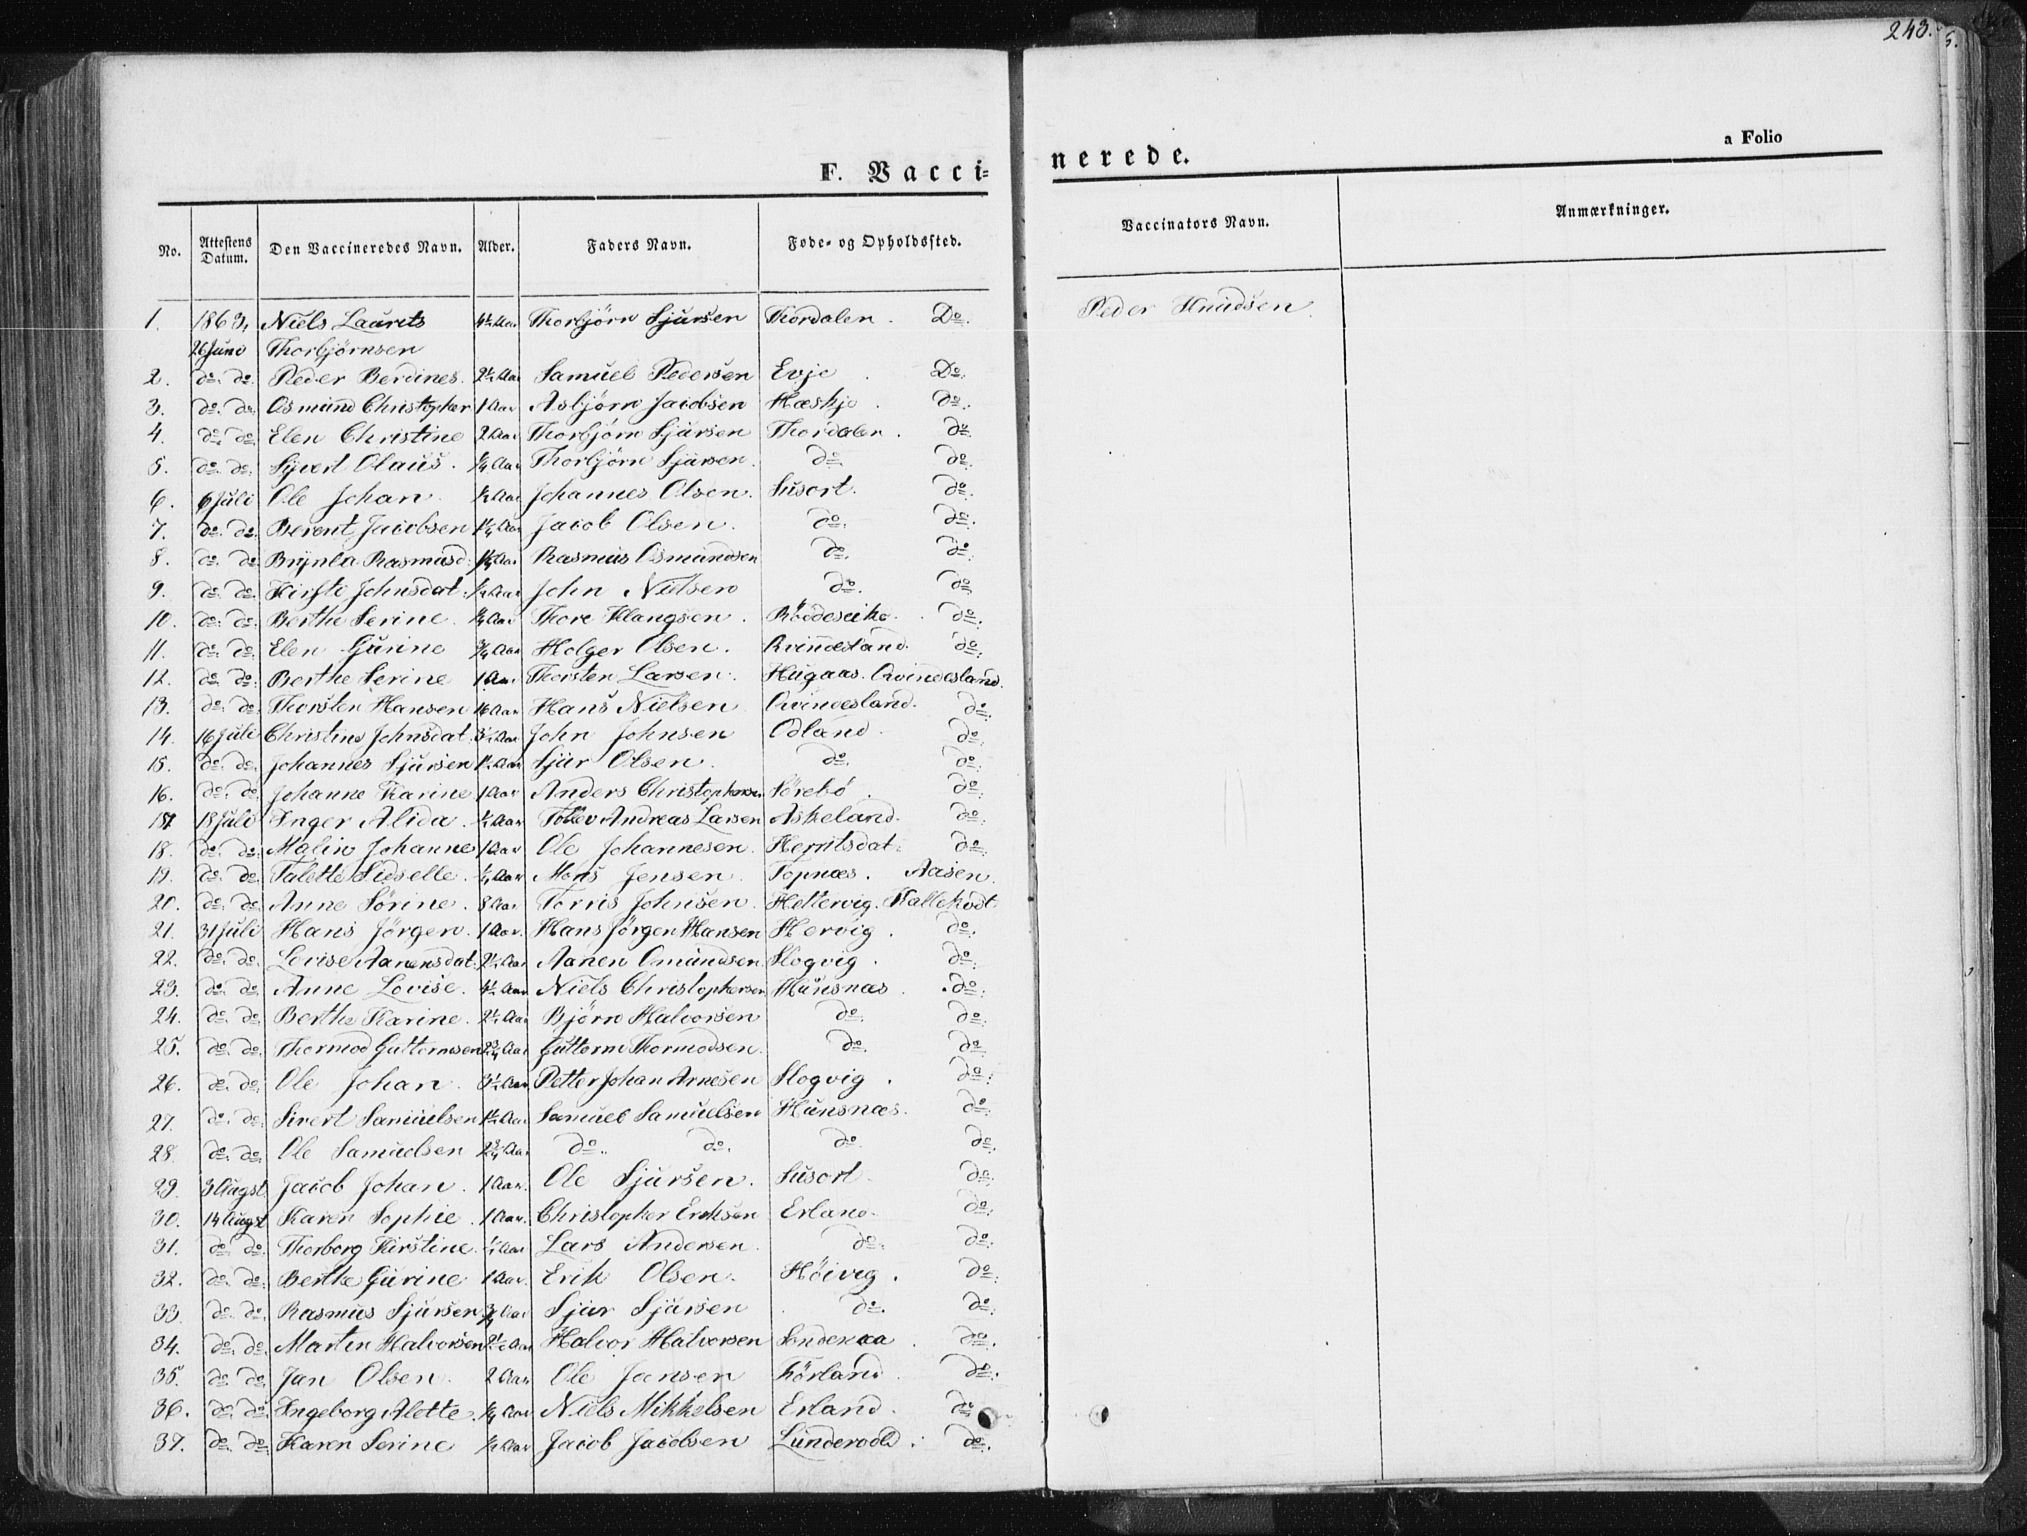 243.
F. Vacci=
nerede.
a Folio
No. Attestens Datum. Den Vaccineredes Navn. Alder. Faders Navn. Føde- og Opholdssted. Vaccinators Navn. Anmærkninger.
1. 1863, Niels Laurits 4½ Aar Thorbjörn Sjursen Thordalen. Do. Peder Knudsen
26 Juni Thorbjørnsen
2. do. do. Peder Berdines. 2½ Aar Samuel Pedersen Evje. Do.
3. do. do. Osmund Christopher 1 Aar Asbjörn Jacobsen Hæskje. do.
4. do. do. Elen Christine 2 Aar Thorbjörn Sjursen Thordalen. do.
5. do. do. Sjvert Olaus. ¼ Aar Thorbjörn Sjursen. do. do.
6. 6 Juli Ole Johan. Aar Johannes Olsen. Susort. do.
7. do. do. Berent Jacobsen Aar Jacob Olsen. do. do.
8. do. do. Brynla Rasmusd. Aar. Rasmus Osmundsen do. do.
9. do. do. Kirsti Johnsdat. Aar John Nielsen do. do.
10. do. do. Berthe Serine. Aar Thore Klangsen. do.
11. do. do. Elen Gurine ¾ Aar Holger Olsen. Qvindesland. do.
12. do. do. Berthe Serine 1 Aar. Thorsten Larsen. Hugaas. Qvindesland.
13. do. do. Thorsten Hansen 16 Aar Hans Nielsen Qvindesland. do.
14. 16 Juli Christine Johnsdat. Aar John Johnsen Odland. do.
15. do. do. Johannes Sjursen Aar Sjur Olsen. do. do.
16. do. do. Johanne Karine 1 Aar Anders Christophersen Sörebö. do.
17 18 Juli Inger Alida. Aar. Andreas Larsen Askeland. do.
18. do. do. Malin Johanne 1 Aar Ole Johannesen. do.
19. do. do. Talette Sidselle. Aar Mons Jensen. Topnæs. Aasen.
20. do. do. Anne Sörine. 8 Aar Torris Johnsen. Hettervig.
21. 31 Juli Hans Jörgen. 1 Aar. Hans Jörgen Hansen Hervig. do.
22. do. do. Lovise Aanensdat. 2½ Aar Aanen Omundsen Slogvig. do.
23. do. do. Anne Lovise. 4½ Aar Niels Christophersen Hunsnæs. do.
24. do. do. Berthe Karine. 2½ Aar Björn Halvorsen do. do.
25. do. do. Thormod Guttormsen 2¾ Aar Guttorm Thormodsen. do. do.
26. do. do. Ole Johan. 3½ Aar Petter Johan Arnesen Slogvig. do.
27. do. do. Sivert Samuelsen Aar Samuel Samuelsen Hunsnæs. do.
28. do. do. Ole Samuelsen 2¾ Aar do. do. do. do.
29. 3 Augst. Jacob Johan. 1 Aar. Ole Sjursen. Susort. do.
30. 14 Augst Karen Sophie. 1 Aar. Christopher Eriksen Erland. do.
31. do. do. Thorborg Kirstine. Aar Lars Andersen. do. do.
32. do. do. Berthe Gurine 1 Aar. Erik Olsen. Höivig. do.
33. do. do. Rasmus Sjursen ¾ Aar Sjur Sjursen do. do.
34. do. do. Martin Halvorsen 2½ Aar Halvor Halvorsen Söndenaa. do.
35. do. do. Jan Olsen. 2 Aar Ole Jansen Förland. do.
36. do. do. Ingeborg Alette. Aar Niels Mikkelsen Erland. do.
37. do. do. Karen Serine Aar Jacob Jacobsen Lundervold. do.